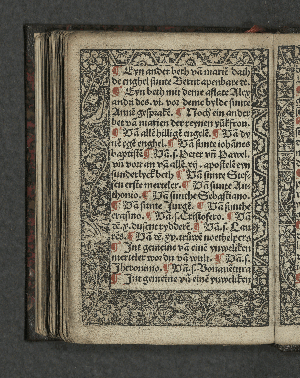 ¶ Eyn ander beth vā mariē dath
de enghel sunte Bernt apenbare
¶ Eyn beth mit deme aflate Alex
andri des .vi. vor deme bylde sunte
Annē gesprakē. ¶ Noch ein ander
bet vā marien der reynen yūkfrou.
¶ Vā allē hilligē engelē. ¶ Vā dy
nē ēghel. ¶ Vā sunte iohanes
baptistē ¶ Vā .S. Peter vn̄ Pawel.
vn̄ vort an vā allē .xij. apostelē eyn
sunderlyck beth ¶ Vā sunte Stef
fen erste merteler. ¶ Vā sunte An
thonio. ¶ Vā sunthe Sebastiano.
¶ Vā sunte Jurgē. ¶ Vā sunthe
erasmo. ¶ Vā .s. Cristofero. ¶ Vā
.x. dusent rydderē. ¶ Vā .s. Lau
rēs. ¶ Vā
¶ Int gemeine vā einē yuweliken
merteler wor du vā wult. ¶ Vā .s.
Jheronimo. ¶ Vā .s. Bonauētura
¶ Int gemeine vā einē yuweliken